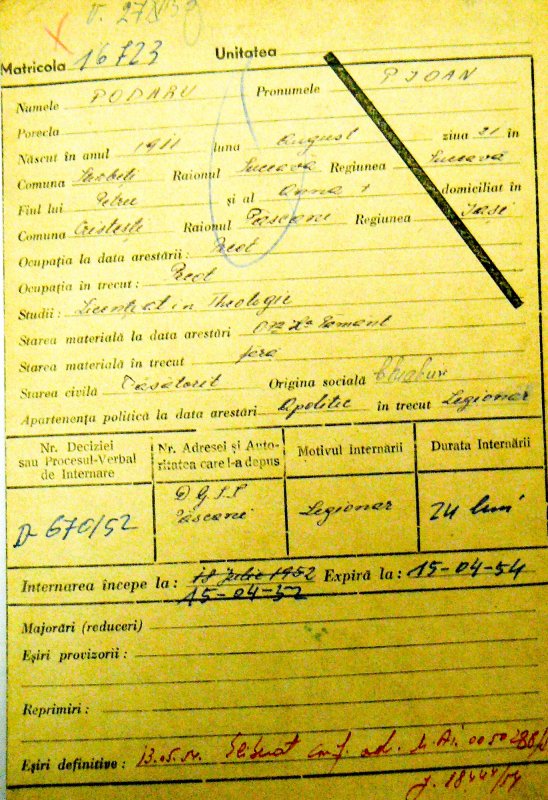 Matricola 16723 Unitatea
Numele PODARU Pronumele P. IOAN
Porecla
Născut în anul 1911 luna August ziua 21 în
Comuna Raionul Suceava Regiunea Suceava
Fiul lui Petru și al Anna domiciliat în
Comuna Cristești Raionul Pășcani Regiunea Iași
Ocupația la data arestării: Preot
Ocupația în trecut: Preot
Studii: Licentiat in Theologie
Starea materială la data arestări
Starea materială în trecut fara
Starea civilă Casatorit Origina socială
Apartenența politică la data arestări Apolitic în trecut Legionar
Nr. Deciziei sau Procesul-Verbal de Internare
Nr. Adresei și Auto-ritatea care l-a depus
Motivul Internării
Durata Internării
D-670/52
Pascani
Legionar
24 luni
Internarea începe la: 18 Julie 1952 Expiră la: 15-04-54
15-04-52
Majorări (reduceri)
Eșiri provizorii:
Reprimiri:
Eșiri definitive: 13.05.54. Liberat conf. ad. M.A.I.